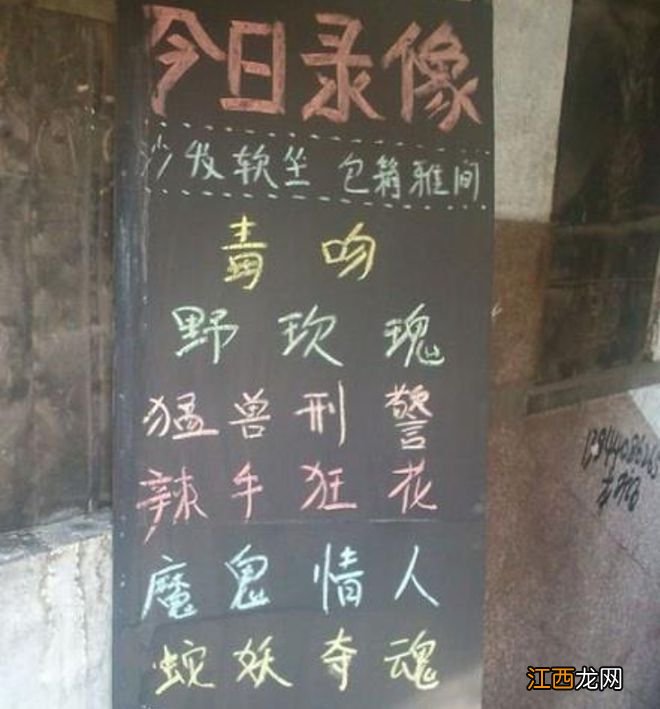 今日录像
沙发软坐 包箱雅间
毒吻
野玫瑰
猛兽刑警
辣手狂花
魔鬼情人
蛇妖夺魂
江西龙网